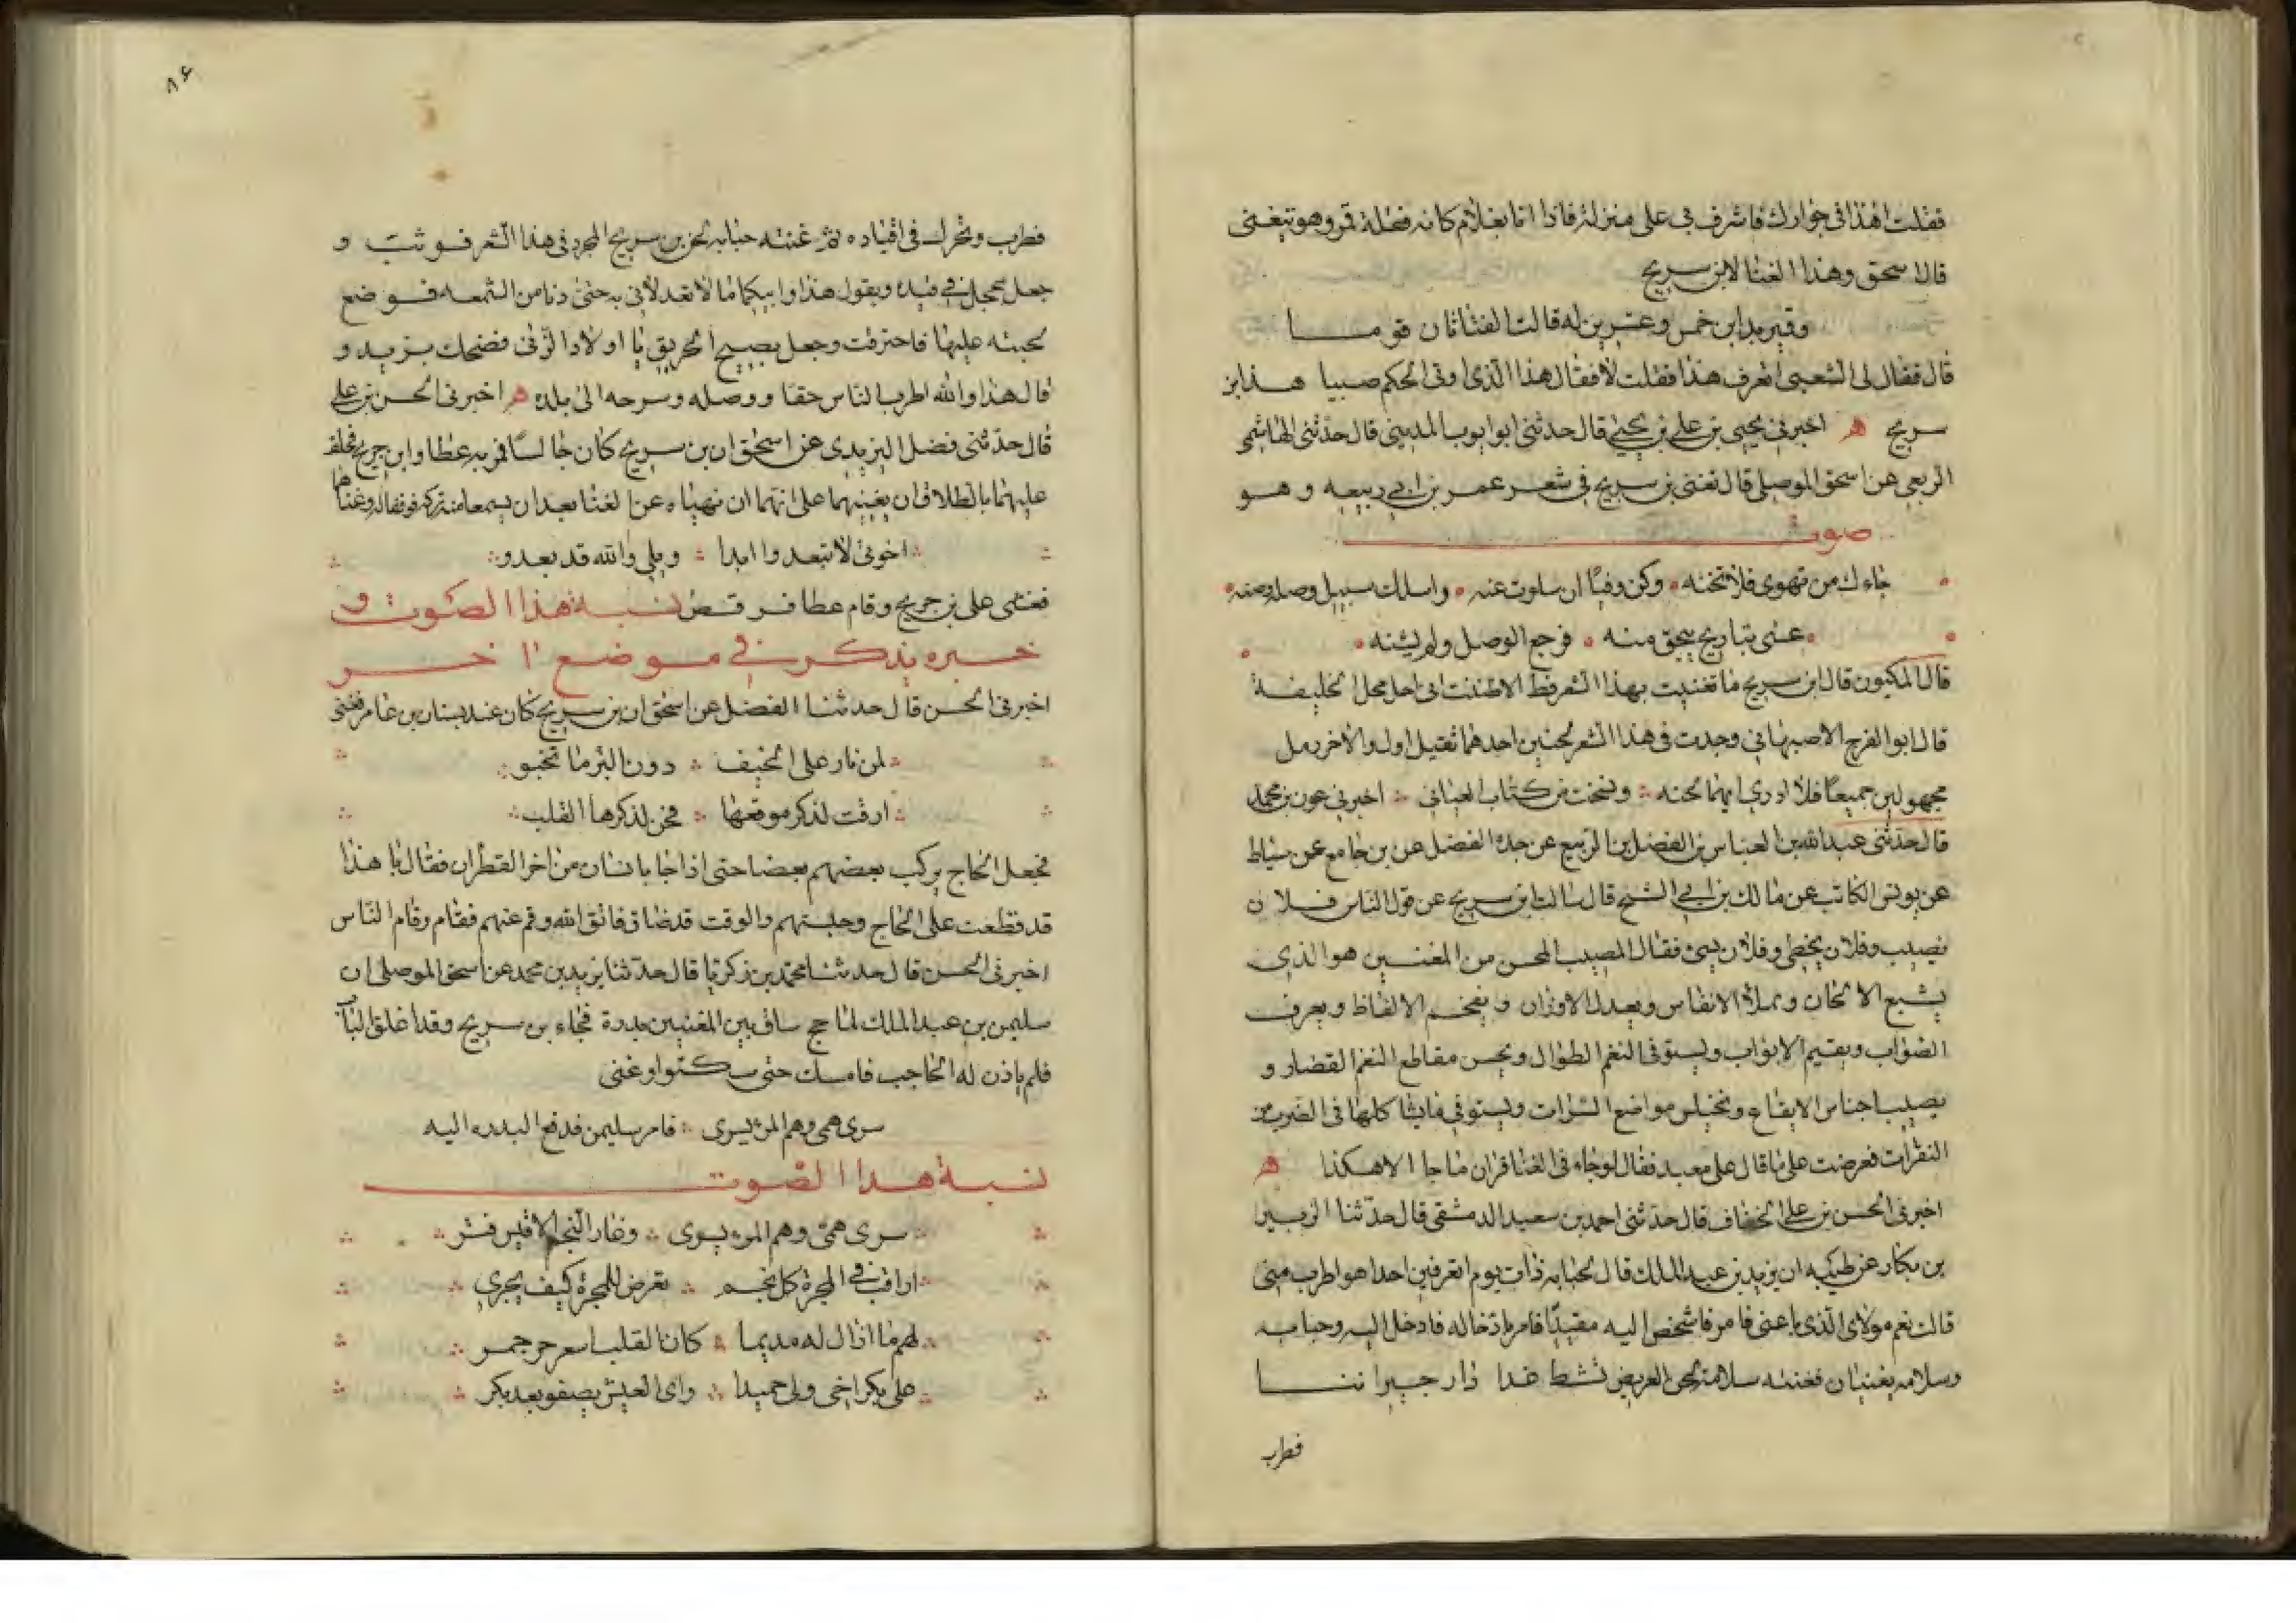 فقلت اهذا فى جوارك فاشرف بى على منزله فاذا انا بغلام كانه فضلة قمر وهو يتغنى
قال اسحق وهذا الغنا لابن سريج
وقمير بدا ابن خمس وعشرين له قالت الفتاتان قوما
قال فقال لى الشعبى اتعرف هذا فقلت لا فقال هذا الذى اوتى الحكم صبيا هذا ابن
سريج ھ اخبرنى يحيى بن على بن يحيى قال حدثنى ابو ايوب المدينى قال حدثنى الهاشمى
الربعى عن اسحق الموصلى قال تغنى بن سريج فى شعر عمر بن ابى ربيعه وهو
صوت
خانك من تهوى فلا تخنه وكن وفيًا ان سلوت عنه واسلك سبيل وصله وصنه
عسى تباريح يجق منه فرجع الوصل ولم يشنه
قال المكيون قال ابن سريج ما تغنيت بهذا الشعر قط الا ظننت انى احل محل الخليفة
قال ابو الفرج الاصبهانى وجدت فى هذا الشعر لحنين احدهما ثقيل اول والاخر رمل
مجهولين جميعًا فلا ادرى ايهما لحنه ونسخت من كتاب العتابى اخبرنى عون بن محمد
قال حدثنى عبدالله بن العباس بن الفضل بن الربيع عن جده الفضل عن بن جامع عن سياط
عن يونس الكاتب عن مالك بن ابى السمح قال سالت ابن سريج عن قول الناس فلان
يصيب وفلان يخطى وفلان يسئ فقال المصيب المحسن من المغنين هو الذى
يشبع الالحان ويملا الانفاس ويعدل الاوزان ويفخم الالفاظ ويعرف
الصواب ويقيم الاعراب ويستوفى النغم الطوال ويحسن مقاطع النغم القصار و
يصيب اجناس الايقاع ويختلس مواضع النبرات ويستوفى ما يشاكلها فى الضرب من
النقرات فعرضت على ما قال على معبد فقال لو جاء فى الغنا قران ما جا الا هكذا ھ
اخبرنى الحسن بن على الخفاف قال حدثنى احمد بن سعيد الدمشقى قال حدثنا الزبير
بن بكار عن ظبيه ان يزيد بن عبد الملك قال لحبابه ذات يوم اتعرفين احدا هو اطرب منى
قالت نعم مولاى الذى باعنى فامر فاشخص اليه مقيدًا فامر بادخاله فادخل اليه وحبابه
وسلامه يغنيان فغنته سلامة لحن الغريض تشط غدا دار جيراننا
فطرب
٨۶
فطرب وتحرك فى اقياده ثم غنته حبابه لحن بن سريج المجرد فى هذا الشعر فوثب و
جعل يحجل فى قيده ويقول هذا وابيكما ما لا تعدلانى به حتى دنا من الشمعه فوضع
لحيته عليها فاحترقت وجعل يصيح الحريق يا اولاد الزنى فضحك يزيد و
قال هذا والله اطرب الناس حقا ووصله وسرحه الى بلده ھ اخبرنى الحسن بن على
قال حدثنى فضل اليزيدى عن اسحق ان بن سريج كان جالسًا فمر به عطا وابن جريج فحلف
عليهما بالطلاق ان يغنيهما على انهما ان نهياه عن الغنا بعد ان يسمعا منه تركه فوقفا له وغناهما
اخوتى لا تبعدوا ابدا وبلى والله قد بعدو
فغشى على بن جريج وقام عطا فرقص نسبة هذا الصوت و
خبره يذكر فى موضع اخر
اخبرنى الحسن قال حدثنا الفضل عن اسحق ان بن سريج كان عند بستان بن عامر فغنى
لمن نار على الخيف دون البئر ما تخبو
ارقت لذكر موقعها فحن لذكرها القلب
فجعل الحاج يركب بعضهم بعضا حتى اذا جا بانسان من اخر القطران فقال يا هذا
قد قطعت على الحاج وحبستهم والوقت قد ضاق فاتق الله وقم عنهم فقام وقام الناس
اخبرنى الحسن قال حدثنا محمد بن زكريا قال حدثنا يزيد بن محمد عن اسحق الموصلى ان
سليمن بن عبد الملك لما حج ساق بين المغنيين بدرة فجاء بن سريج وقد اغلق الباب
فلم ياذن له الحاجب فامسك حتى سكتوا وغنى
سرى همى وهم المرء يسرى فامر سليمن فدفع البدره اليه
نسبة هذا الصوت
سرى همى وهم المرء يسرى وغار النجم الا قيس فتر
اراقب فى المجرة كل نجم تعرض للمجرة كيف يجرى
لهم ما ازال له مديما كان القلب اسعر حر جمر
على بكر اخى ولى حميدا واى العيش يصفو بعد بكر